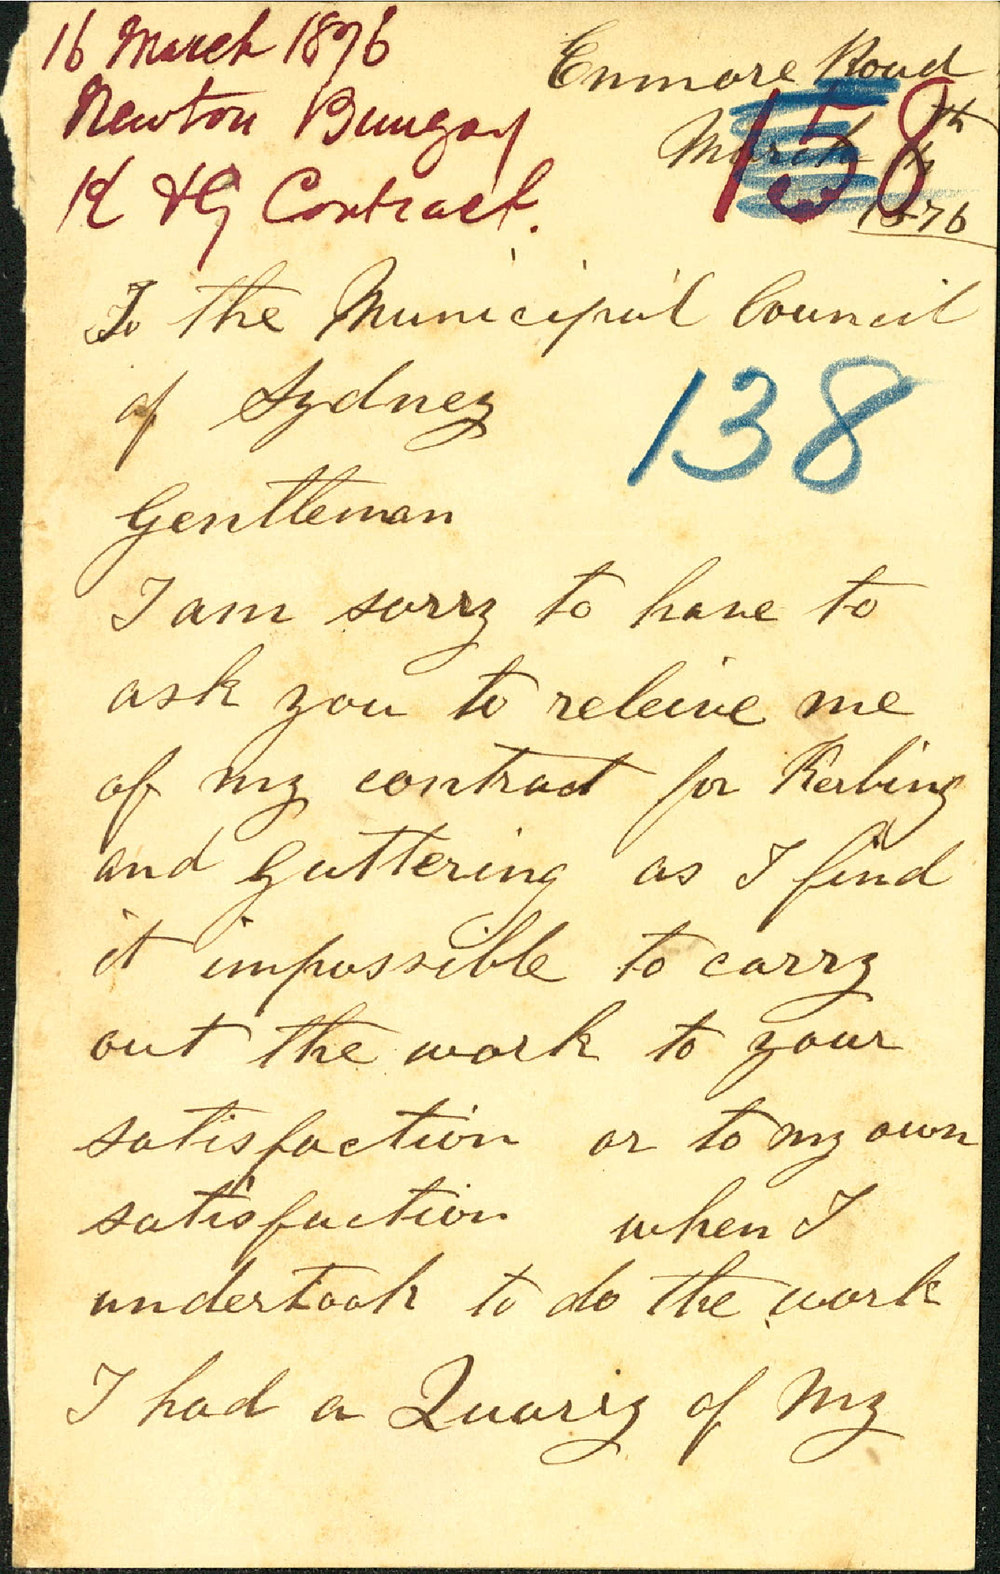 16 March 1876
Newton Bungay
K & G Contract.
Enmore Road
158
March th
1876
To the Municipal Council
of Sydney
138
Gentleman
I am sorry to have to
ask you to releive me
of my contract for Kerbing
and Guttering as I find
it impossible to carry
out the work to your
satisfaction or to my own
satisfaction when I
undertook to do the work
I had a Quarry of My